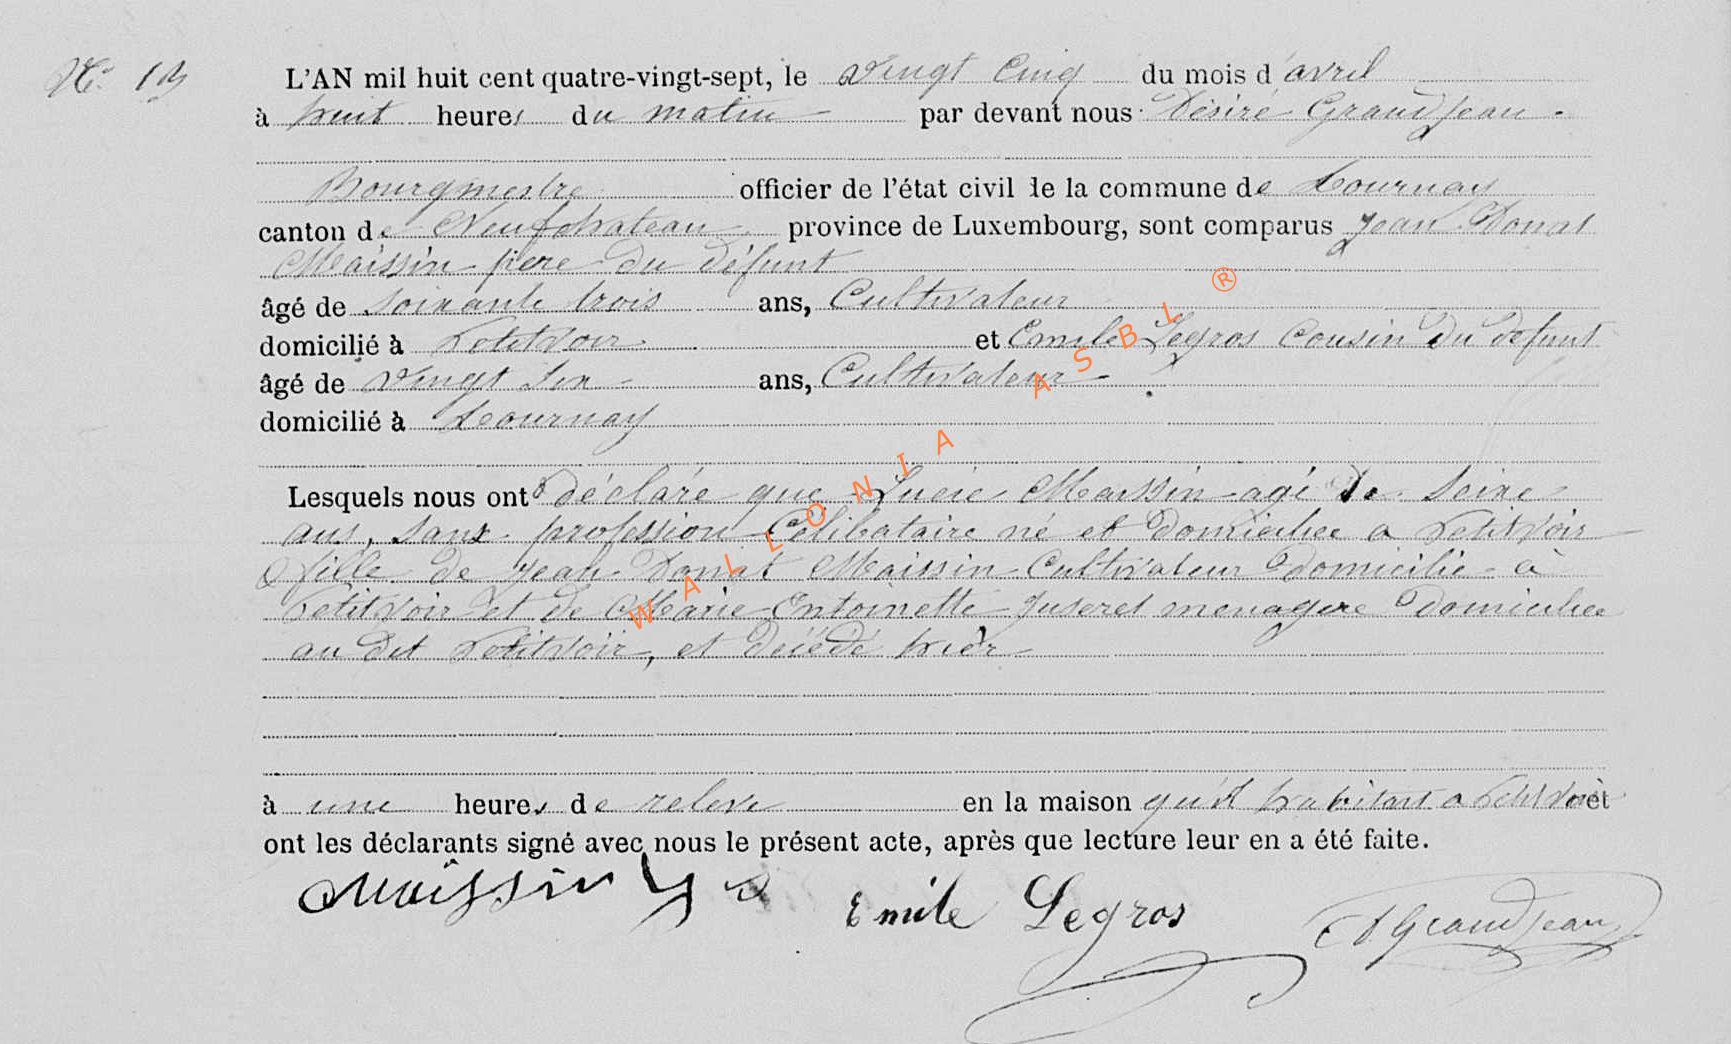 N° 13
L'AN mil huit cent quatre-vingt-sept, le vingt Cinq du mois d'avril
à huit heures du matin par devant nous Désiré Grandjean
Bourgmestre officier de l'état civil de la commune de Tournay
canton de Neufchateau province de Luxembourg, sont comparus Jean Donat
Maissin père du défunt
âgé de soixante trois ans, Cultivateur
domicilié à Petitvoir et Emile Legros Cousin du defunt
âgé de vingt ans, Cultivateur
domicilié à Tournay
Lesquels nous ont déclaré que Lucie Maissin agé de Seize
ans, sans profession Célibataire né et domiciliee a Petitvoir
fille de Jean Donat Maissin Cultivateur domicilié à
Petitvoir et de Marie Entoinette Juseret menagere domiciliee
au dit Petitvoir, et décédé hier
à une heures de releve en la maison qu'il habitait a Petitvoir et
ont les déclarants signé avec nous le présent acte, après que lecture leur en a été faite.
Maissin J D Emile Legros D Grandjean
WALLONIA ASBL ®